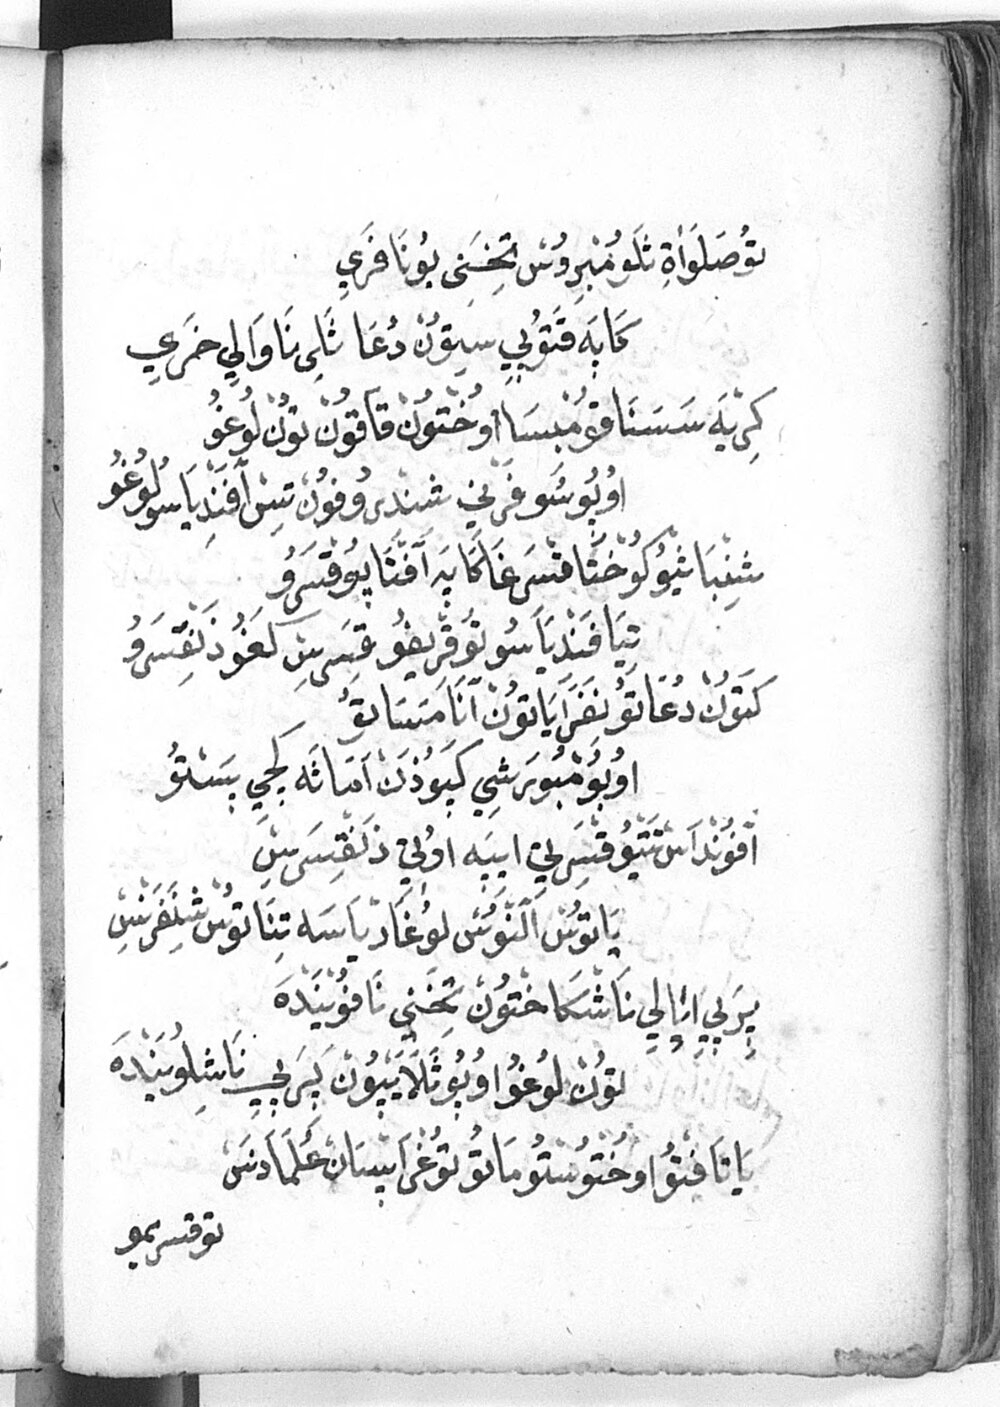 تؤُ صَلَوَاةِ ثَلوُ مْبِروُسْ تَخِسَنِى يوُنَا فَرَيِ
كَابَه قَتوُبِي سِتوُنْ دُعَا ثَلِى نَا وَالِي خَرَيِ
كِرْيَه سَسَنَا قوُمْبِسَا اوُخْتوُنْ قَاقوُنْ توُنْ لوُغوُ
اوُبوُسُو فَرْنِي شندروُفوُنْ تِسْ اَفَنْدِيَاسُو لوُغوُ
شنِبَا شوُكوُخْتَا فْسَرغَا كَابَه اَفْتَا بوُ قْسَروُ
تِيَافَنْدِيَاسُو توُ قْرِيفوُ قْسَرسِ كَغوُ ذَنْقْسَروُ
كَتوُنْ دُعَاتوُ نَفَرَايَاتوُنْ اَنَامَسَاتوُ
اوُبوُ مْبوُرَشِي كَبَوُذَنْ اَمَاثَه كَجِي بِسْتوُ
اَفوُنْدَاسْ تَتوُ قْسَرِي ابِيَه اوُلِي ذَنْقْسَرسِ
يَاتوُسْ اَلَّنوُسْ لوُغَادِيَاسَه تِنَاتوُسْ شنَفَرْسِ
بِرَبِي اَبَالِي نَاشَكَاخْتوُنْ تَخَنِي نَافوُنَنْدَه
توُنْ لوُغوُ اوُبوُ ثَلَا يَبوُنْ بِرَبِي نَاشِلوُنَنْدَه
يَاتَافْتوُ اوُخْتوُسْتوُمَاتوُ توُغْرَابْسَانْ عُلَمَادَسْ
توقسريمو